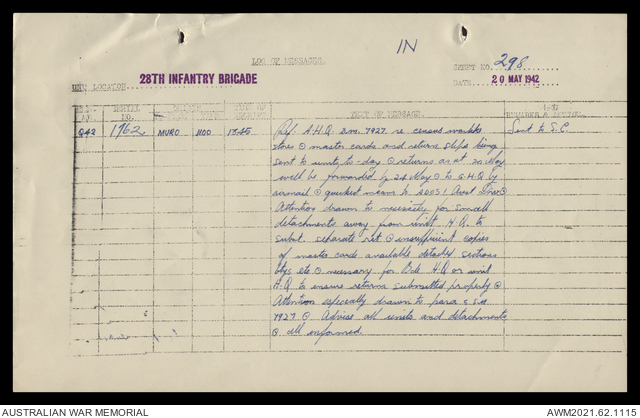 IN
LOG OF MESSAGES.
SHEET NO. 298
28TH INFANTRY BRIGADE
UNIT LOCATION
DATE. 20 MAY 1942
SERIAL NO. TEXT OF MESSAGE.
Q42 1762 MURO 1100 1745 Ref A.H.Q. S.M. 7927 re census
Sent to S.C.
store @ master cards and return slips being
sent to units to-day @ returns as at 20 May
will be forwarded by 24 May @ to G.H.Q by
airmail @ quickest means to
Attention drawn to necessity for small
detachments away from unit H.Q. to
submt. separate ret @ insufficient copies
of master cards available detached sections
btys etc @ necessary for Bde H.Q or unit
H.Q to ensure returns submitted properly @
Attention especially drawn to para
7927 @ Advise all units and detachments
@ all informed.
AUSTRALIAN WAR MEMORIAL
AWM2021.62.1115